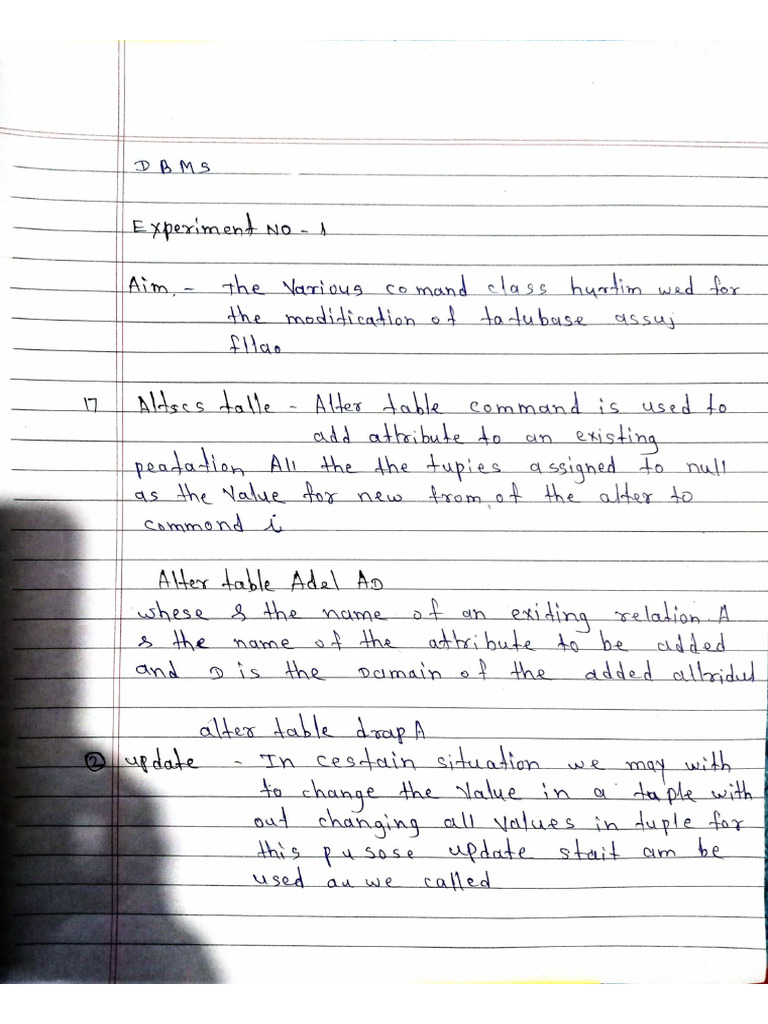 DBMS
Experiment NO - 1
Aim. - the Various comand class hurtim wed for
the modification of tatubase assuj
fllao
17 Altscs talle - Alter table command is used to
add attribute to an existing
peatation All the the tupies assigned to null
as the Value for new from of the alter to
commond i
Alter table Adel AD
whese & the name of an exiting relation. A
s the name of the attribute to be added
and D is the Damain of the added allridut
alter table drap A
② update - In cestain situation we may with
to change the Value in a taple with
out changing all values in tuple for
this pusose update stait am be
used au we called